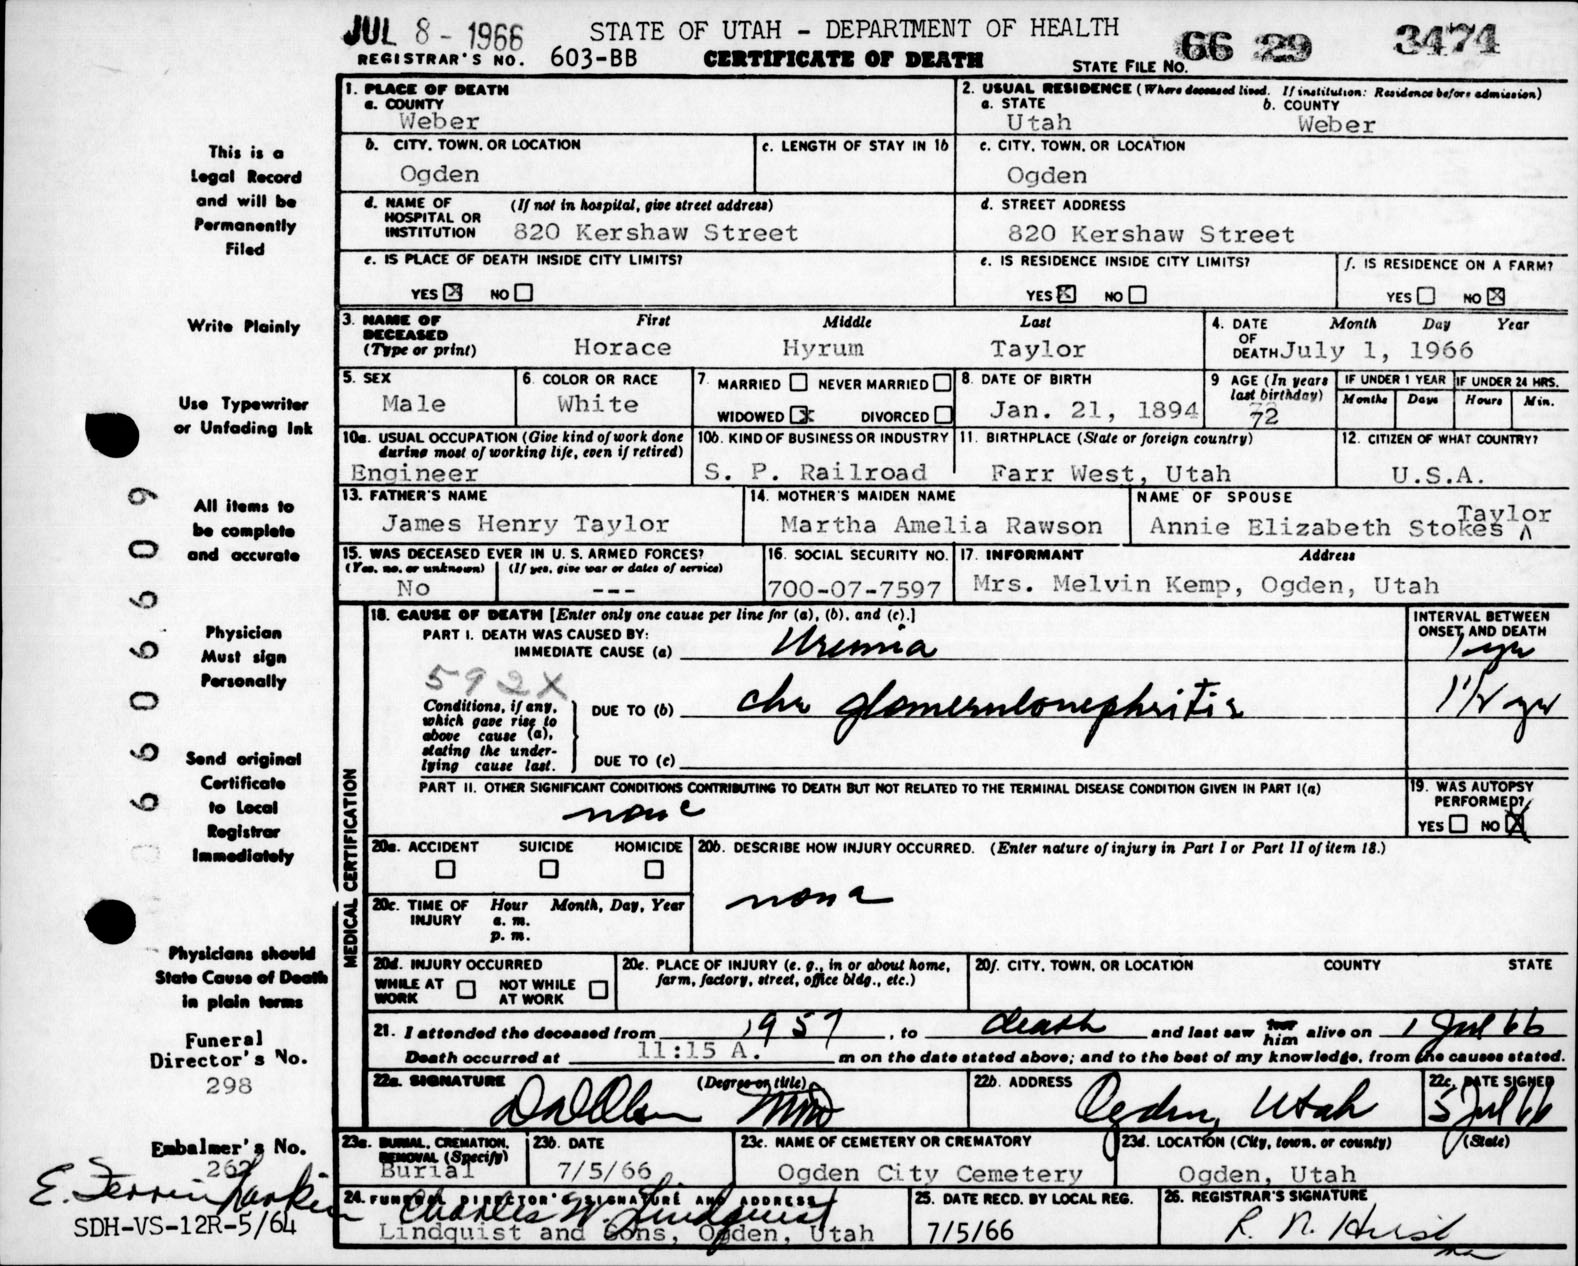 JUL 8 - 1966
STATE OF UTAH - DEPARTMENT OF HEALTH
REGISTRAR'S NO. 603-BB
CERTIFICATE OF DEATH
STATE FILE NO. 66 29 3474
This is a
Legal Record
and will be
Permanently
Filed
Write Plainly
Use Typewriter
or Unfading Ink
All items to
be complete
and accurate
Physician
Must sign
Personally
Send original
Certificate
to Local
Registrar
Immediately
Physicians should
State Cause of Death
in plain terms
Funeral
Director's No.
298
Embalmer's No.
262
E. Ferrin Larkin
SDH-VS-12R-5/64
1. PLACE OF DEATH
a. COUNTY
Weber
2. USUAL RESIDENCE (Where deceased lived. If institution: Residence before admission)
a. STATE b. COUNTY
Utah Weber
b. CITY, TOWN, OR LOCATION
Ogden
c. LENGTH OF STAY IN 1b
c. CITY, TOWN, OR LOCATION
Ogden
d. NAME OF HOSPITAL OR INSTITUTION (If not in hospital, give street address)
820 Kershaw Street
d. STREET ADDRESS
820 Kershaw Street
e. IS PLACE OF DEATH INSIDE CITY LIMITS?
YES X NO
e. IS RESIDENCE INSIDE CITY LIMITS?
YES X NO
f. IS RESIDENCE ON A FARM?
YES NO X
3. NAME OF DECEASED (Type or print)
First Middle Last
Horace Hyrum Taylor
4. DATE OF DEATH Month Day Year
July 1, 1966
5. SEX
Male
6. COLOR OR RACE
White
7. MARRIED NEVER MARRIED
WIDOWED X DIVORCED
8. DATE OF BIRTH
Jan. 21, 1894
9 AGE (In years last birthday)
72
IF UNDER 1 YEAR IF UNDER 24 HRS.
Months Days Hours Min.
10a. USUAL OCCUPATION (Give kind of work done during most of working life, even if retired)
Engineer
10b. KIND OF BUSINESS OR INDUSTRY
S. P. Railroad
11. BIRTHPLACE (State or foreign country)
Farr West, Utah
12. CITIZEN OF WHAT COUNTRY?
U.S.A.
13. FATHER'S NAME
James Henry Taylor
14. MOTHER'S MAIDEN NAME
Martha Amelia Rawson
NAME OF SPOUSE
Annie Elizabeth Stokes ^ Taylor
15. WAS DECEASED EVER IN U. S. ARMED FORCES?
(Yes, no, or unknown) (If yes, give war or dates of service)
No ---
16. SOCIAL SECURITY NO.
700-07-7597
17. INFORMANT Address
Mrs. Melvin Kemp, Ogden, Utah
MEDICAL CERTIFICATION
18. CAUSE OF DEATH [Enter only one cause per line for (a), (b), and (c).]
INTERVAL BETWEEN ONSET AND DEATH
PART I. DEATH WAS CAUSED BY:
IMMEDIATE CAUSE (a) Uremia 1 yr
592X
Conditions, if any, which gave rise to above cause (a), stating the underlying cause last.
DUE TO (b) chr glomerulonephritis 1 1/2 yr
DUE TO (c)
PART II. OTHER SIGNIFICANT CONDITIONS CONTRIBUTING TO DEATH BUT NOT RELATED TO THE TERMINAL DISEASE CONDITION GIVEN IN PART I(a)
none
19. WAS AUTOPSY PERFORMED?
YES NO X
20a. ACCIDENT SUICIDE HOMICIDE
20b. DESCRIBE HOW INJURY OCCURRED. (Enter nature of injury in Part I or Part II of item 18.)
none
20c. TIME OF INJURY Hour Month, Day, Year
a. m.
p. m.
20d. INJURY OCCURRED
WHILE AT WORK NOT WHILE AT WORK
20e. PLACE OF INJURY (e. g., in or about home, farm, factory, street, office bldg., etc.)
20f. CITY, TOWN, OR LOCATION COUNTY STATE
21. I attended the deceased from 1957, to death and last saw him alive on 1 Jul 66
Death occurred at 11:15 A. m on the date stated above; and to the best of my knowledge, from the causes stated.
22a. SIGNATURE (Degree or title)
MD
22b. ADDRESS
Ogden, Utah
22c. DATE SIGNED
5 Jul 66
23a. BURIAL, CREMATION, REMOVAL (Specify)
Burial
23b. DATE
7/5/66
23c. NAME OF CEMETERY OR CREMATORY
Ogden City Cemetery
23d. LOCATION (City, town, or county) (State)
Ogden, Utah
24. FUNERAL DIRECTOR'S SIGNATURE AND ADDRESS
Charles W. Lindquist
Lindquist and Sons, Ogden, Utah
25. DATE RECD. BY LOCAL REG.
7/5/66
26. REGISTRAR'S SIGNATURE
R. N. Hirst
6606609